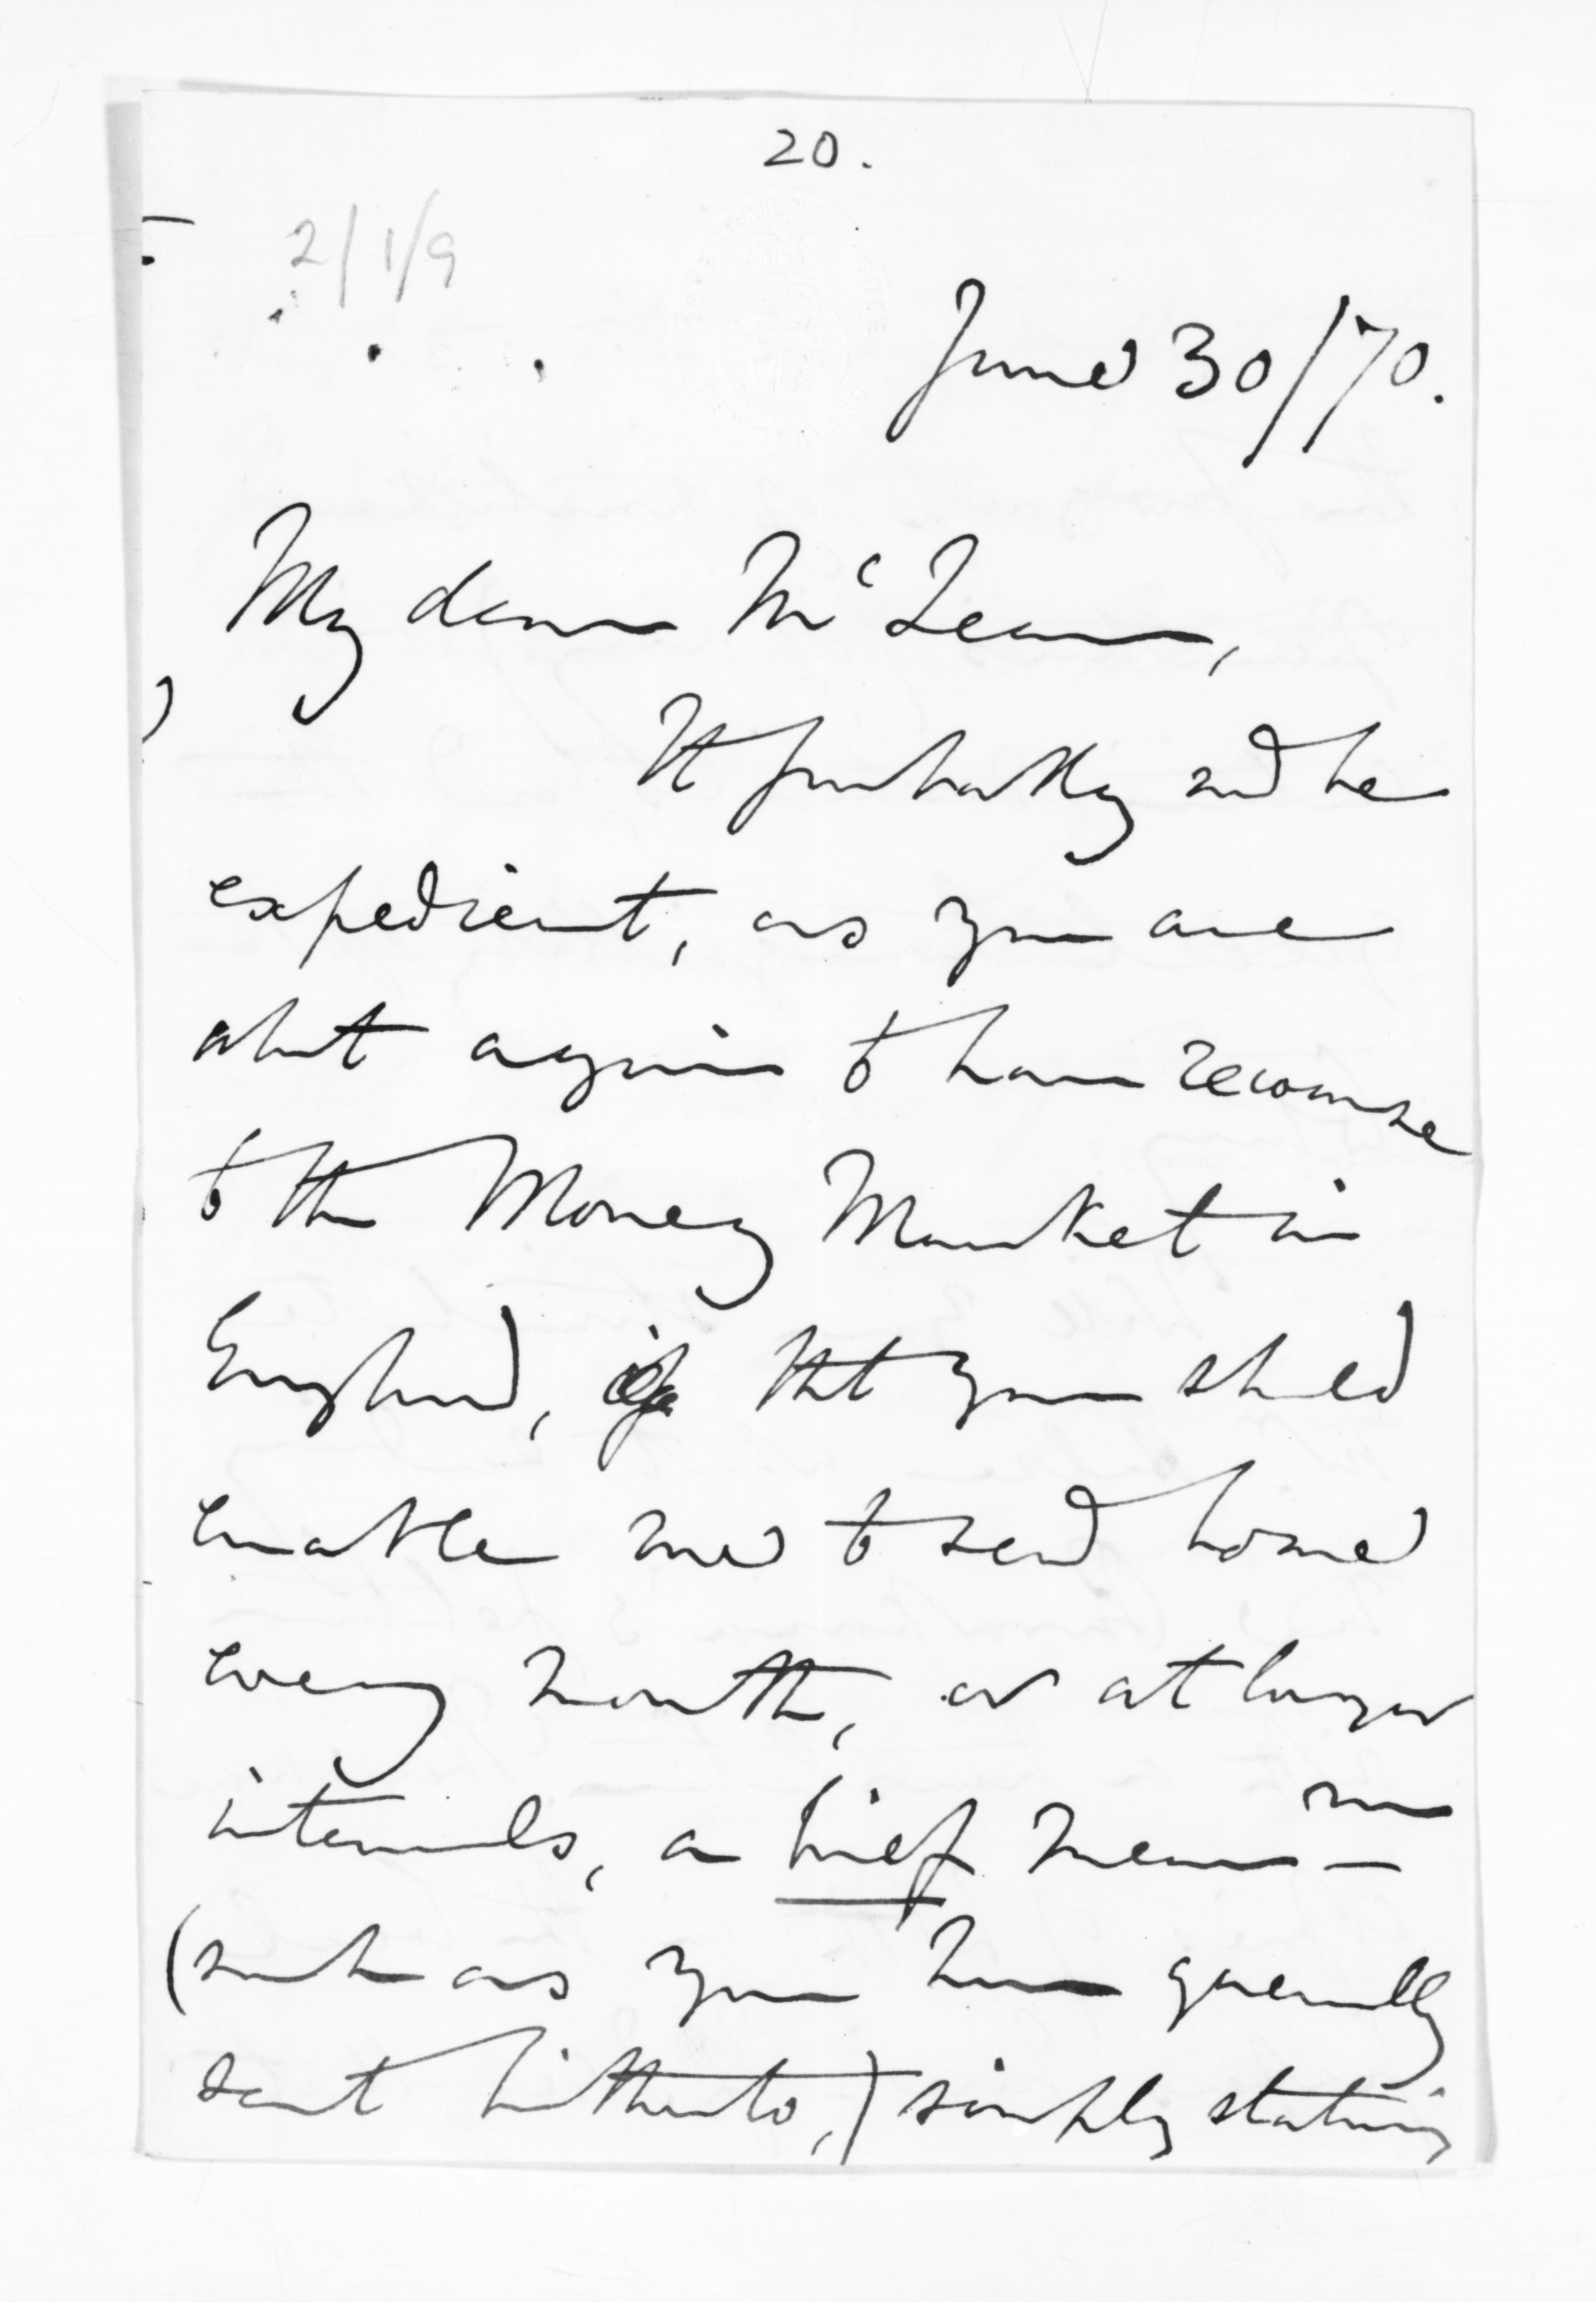 20.
2/1/9
June 30/70.
My dear McLean,
It probably wd be
expedient, as you are
about again to have recourse
to the Money Market in
England, if that you should
enable me to send home
every month, or at longer
intervals, a brief memm
(such as you have generally
sent hitherto,) simply stating